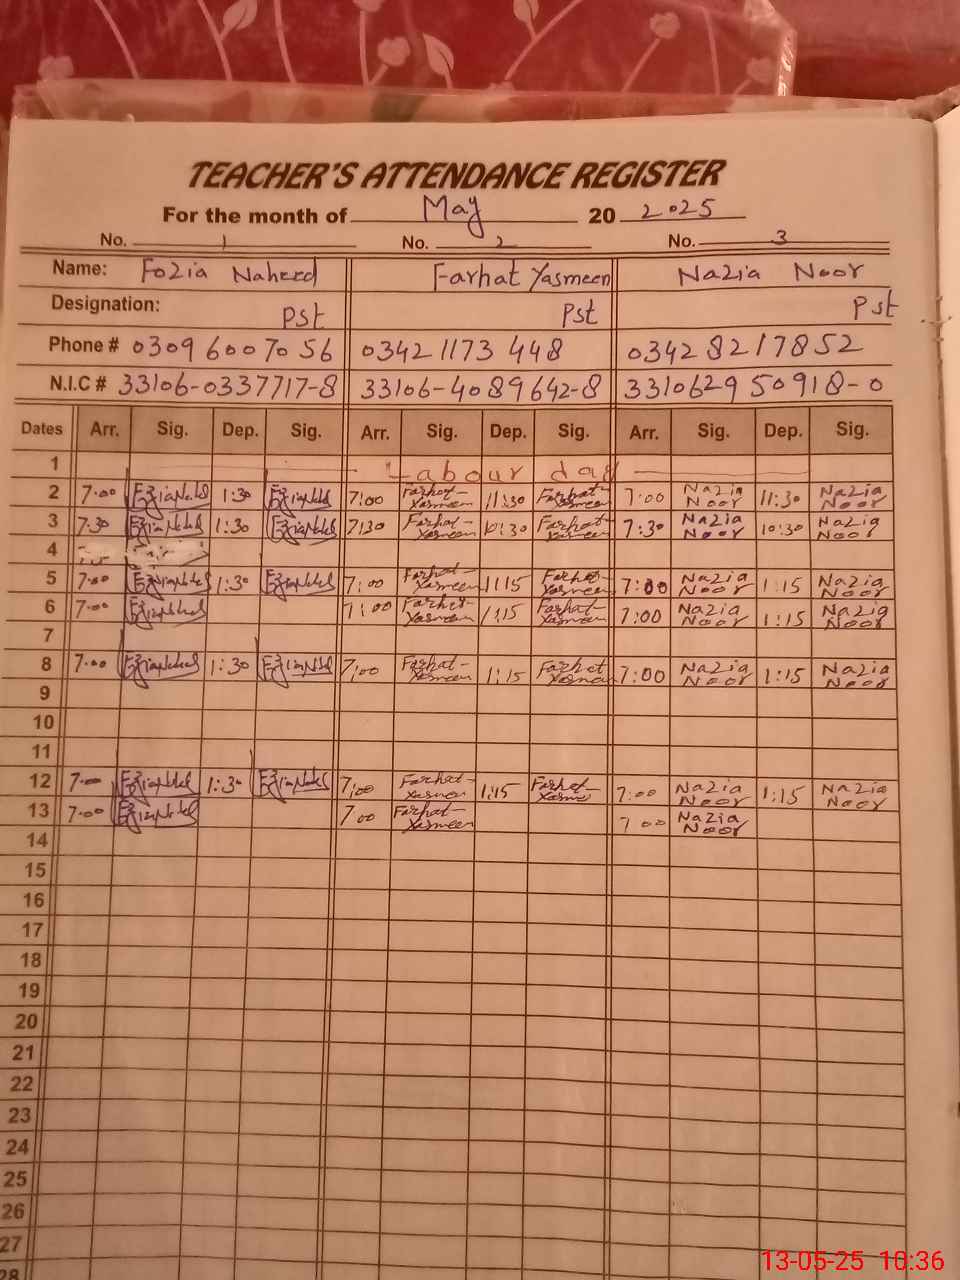 TEACHER'S ATTENDANCE REGISTER
For the month of May 20 2025
No. 1 No. 2 No. 3
Name: Fozia Naheed Farhat Yasmeen Nazia Noor
Designation: Pst Pst Pst
Phone # 0309 6007056 0342 1173 448 0342 8217852
N.I.C # 33106-0337717-8 33106-4089642-8 3310629 50918-0
Dates Arr. Sig. Dep. Sig. Arr. Sig. Dep. Sig. Arr. Sig. Dep. Sig.
1 Labour day
2 7:00 1:30 7:00 Farhat Yasmeen 11:30 Farhat Yasmeen 7:00 Nazia Noor 11:30 Nazia Noor
3 7:30 1:30 7:30 Farhat Yasmeen 10:30 Farhat Yasmeen 7:30 Nazia Noor 10:30 Nazia Noor
4
5 7:00 1:30 7:00 Farhat Yasmeen 1:15 Farhat Yasmeen 7:00 Nazia Noor 1:15 Nazia Noor
6 7:00 7:00 Farhat Yasmeen 1:15 Farhat Yasmeen 7:00 Nazia Noor 1:15 Nazia Noor
7
8 7:00 1:30 7:00 Farhat Yasmeen 1:15 Farhat Yasmeen 7:00 Nazia Noor 1:15 Nazia Noor
9
10
11
12 7:00 1:30 7:00 Farhat Yasmeen 1:15 Farhat Yasmeen 7:00 Nazia Noor 1:15 Nazia Noor
13 7:00 7 00 Farhat Yasmeen 7 00 Nazia Noor
14
15
16
17
18
19
20
21
22
23
24
25
26
27
28
13-05-25 10:36